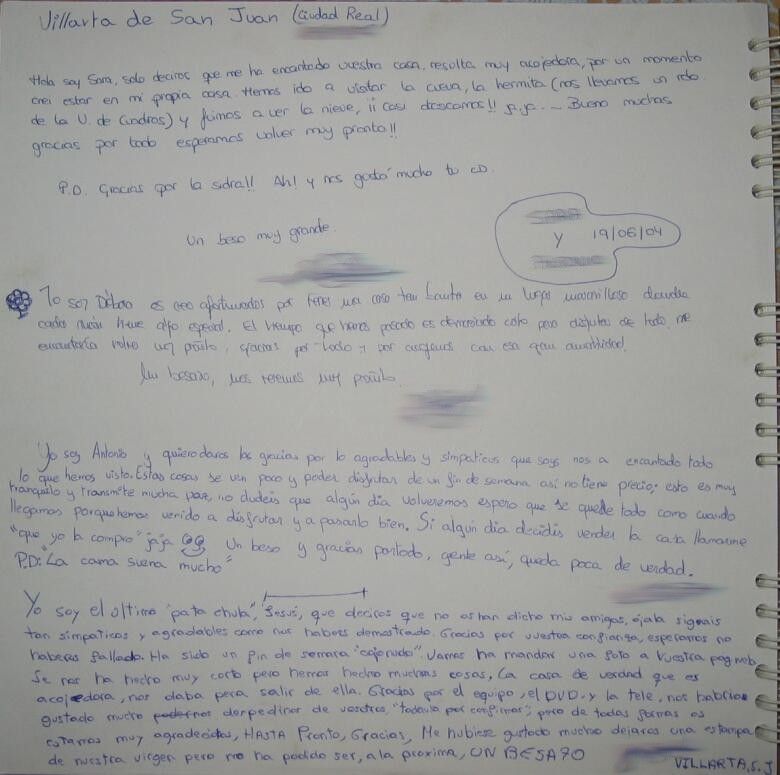 Villarta de San Juan (Ciudad Real)
Hola soy Sara, solo deciros que me ha encantado vuestra casa, resulta muy acojedora, por un momento
crei estar en mi propia casa. Hemos ido a visitar la cueva, la hermita (nos llevamos un rdo
de la V. de Cuadros) y fuimos a ver la nieve, ¡¡ casi descamos!! ja,ja. Bueno muchas
gracias por todo esperamos volver muy pronto!!
P.D. Gracias por la sidra!! Ah! y nos gustó mucho tu CD.
Un beso muy grande.
Y 19/06/04
Yo soy Débora os creo afortunados por tener una casa tan bonita en un lugar maravilloso donde
cada rincón tiene algo especial. El tiempo que hemos pasado es demasiado corto para disfrutar de todo, me
encantaría volver muy pronto, gracias por todo y por acogernos con esa gran amabilidad.
Un besazo, nos veremos muy pronto.
Yo soy Antonio y quiero daros las gracias por lo agradables y simpaticos que soys nos a encantado todo
lo que hemos visto. Estas cosas se ven poco y poder disfrutar de un fin de semana así no tiene precio; esto es muy
tranquilo y transmite mucha paz, no dudeis que algún dia volveremos espero que se quede todo como cuando
llegamos porque hemos venido a disfrutar y a pasarlo bien. Si algún dia decidis vender la casa llamarme
"que yo la compro" jaja Un beso y gracias por todo, gente así, queda poca de verdad.
P.D: "La cama suena mucho"
Yo soy el último "pata chula", "Jesus", que deciros que no os han dicho mis amigas, ojala sigais
tan simpaticos y agradables como nos habeis demostrado. Gracias por vuestra confianza, esperamos no
haberos fallado. Ha sido un fin de semana "cojonudo". Vamos ha mandar una foto a vuestra pag web.
Se nos ha hecho muy corto pero hemos hecho muchas cosas, La casa de verdad que es
acojedora, nos daba pena salir de ella. Gracias por el equipo, el DVD y la tele, nos habria
gustado mucho despedirnos de vosotros, "todavia por confirmar", pero de todas formas os
estamos muy agradecidos, HASTA Pronto, Gracias, Me hubiese gustado mucho dejaros una estampa
de nuestra virgen pero no ha podido ser, a la proxima, UN BESAZO
VILLARTA, S. J